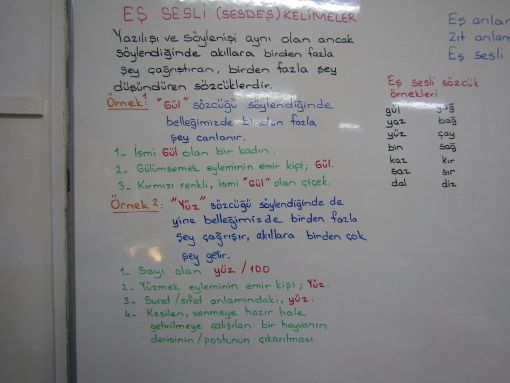 EŞ SESLİ (SESDEŞ) KELİMELER
Yazılışı ve söylenişi aynı olan ancak
söylendiğinde akıllara birden fazla
şey çağrıştıran, birden fazla şey
düşündüren sözcüklerdir.
Örnek 1: "Gül" sözcüğü söylendiğinde
belleğimizde birden fazla
şey canlanır.
1- İsmi Gül olan bir kadın.
2- Gülümsemek eyleminin emir kipi; Gül.
3- Kırmızı renkli, ismi "Gül" olan çiçek.
Örnek 2: "Yüz" sözcüğü söylendiğinde de
yine belleğimizde birden fazla
şey çağrışır, akıllara birden çok
şey gelir.
1- Sayı olan yüz / 100
2- Yüzmek eyleminin emir kipi; Yüz.
3- Surat / sıfat anlamındaki, yüz.
4- Kesilen, yenmeye hazır hale
getirilmeye çalışılan bir hayvanın
derisinin / postunun çıkarılması.
Eş anlam
Zıt anlam
Eş sesli
Eş sesli sözcük
örnekleri
gül yağ
yaz bağ
yüz çay
bin sağ
kaz kır
saz sır
dal diz